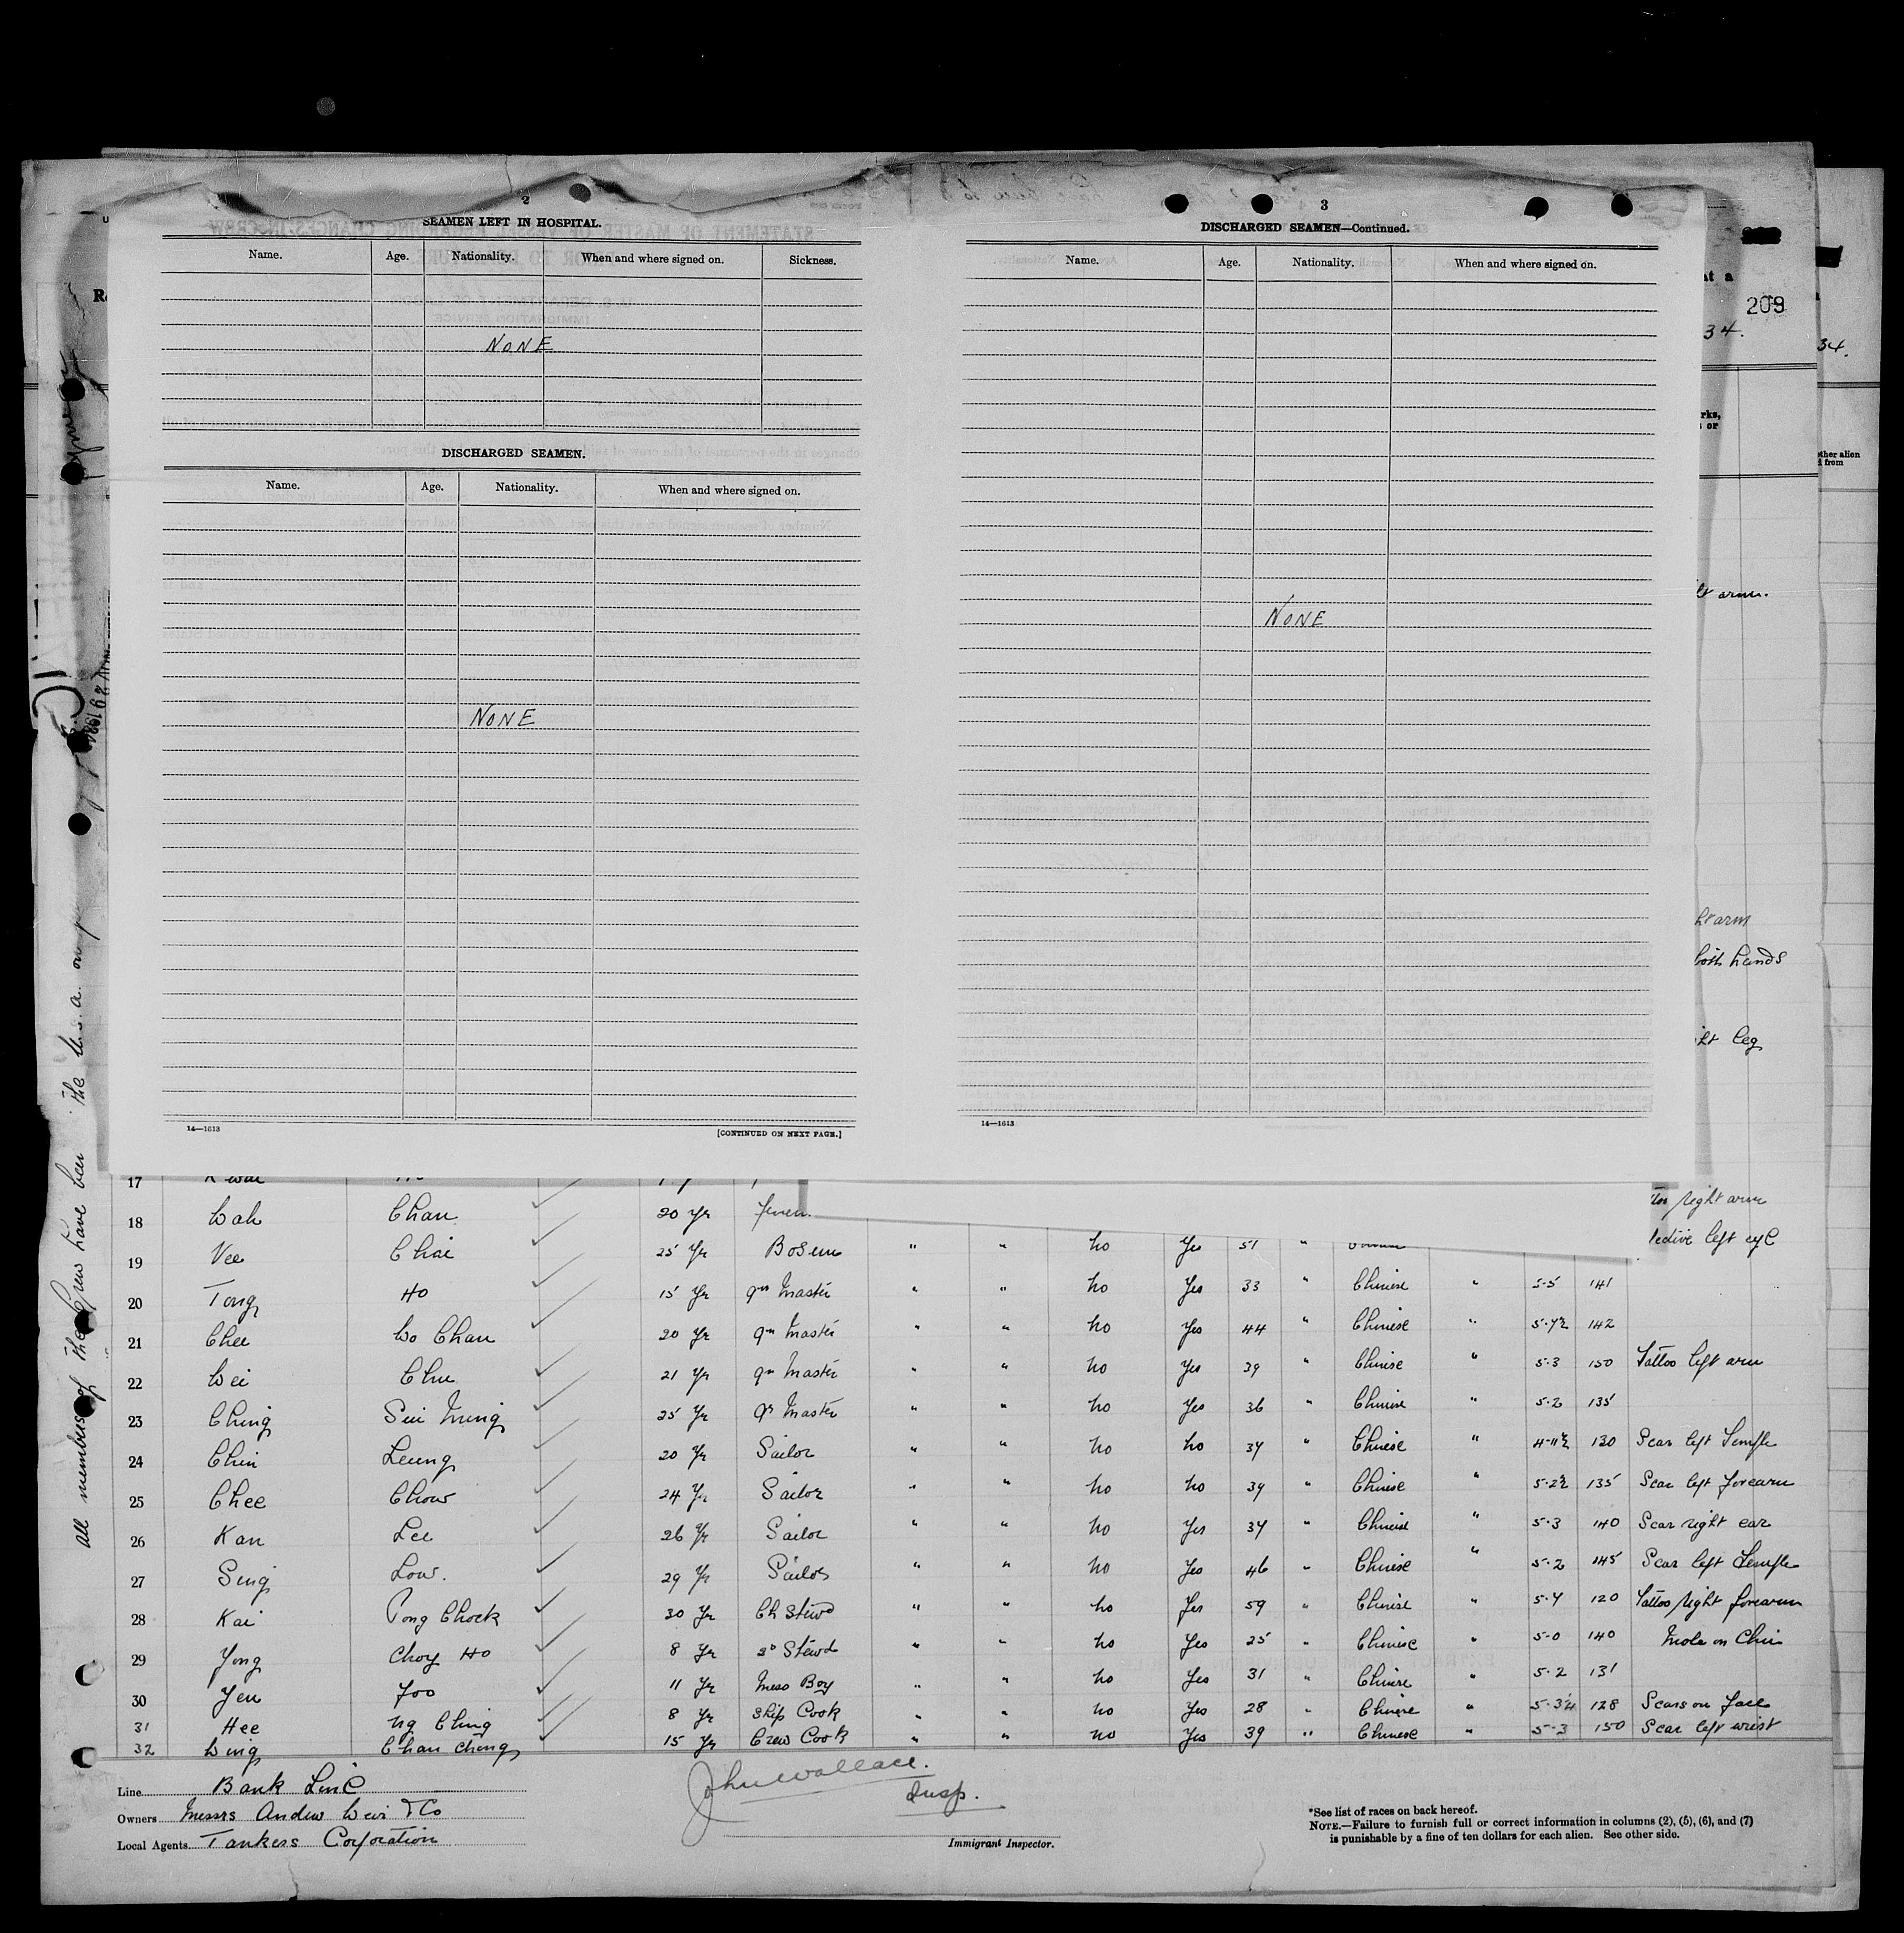 2
SEAMEN LEFT IN HOSPITAL.
Name. Age. Nationality. When and where signed on. Sickness.
NONE
DISCHARGED SEAMEN.
Name. Age. Nationality. When and where signed on.
NONE
14—1613 [CONTINUED ON NEXT PAGE.]
3
DISCHARGED SEAMEN—Continued.
Name. Age. Nationality. When and where signed on.
NONE
14—1613
at a
209
34.
34.
rks,
s or
other alien
d from
lt arm.
ht arm
both hands
ht leg
right arm
left eye
NOV 29 1934
All members of the Crew have been the U.S.A.
17
18 Wah Chan 20 Yr
19 Vee Chai 25 Yr Bosun " " No Yes 51 "
20 Tong Ho 15 Yr Qr Master " " No Yes 33 " Chinese " 5-5 141
21 Chee Wo Chan 20 Yr Qr Master " " No Yes 44 " Chinese " 142
22 Wei Chu 21 Yr Qr Master " " No Yes 39 " Chinese " 5-3 150 Tattoo left arm
23 Ching Sui Ming 25 Yr Qr Master " " No Yes 36 " Chinese " 5-2 135
24 Chin Leung 20 Yr Sailor " " No No 37 " Chinese " 4-11½ 130 Scar left Temple
25 Chee Chow 24 Yr Sailor " " No No 39 " Chinese " 5-2½ 135 Scar left forearm
26 Kan Lee 26 Yr Sailor " " No Yes 37 " Chinese " 5-3 140 Scar right ear
27 Sing Low. 29 Yr Sailor " " No Yes 46 " Chinese " 5-2 145 Scar left Temple
28 Kai Pong Chock 30 Yr Ch Stewd " " No Yes 59 " Chinese " 5-4 120 Tattoo right forearm
29 Yong Choy Ho 8 Yr 2D Stewd " " No Yes 25 " Chinese " 5-0 140 Mole on Chin
30 Yeu Foo 11 Yr Mess Boy " " No Yes 31 " Chinese 5-2 131
31 Hee Ng Ching 8 Yr Ship Cook " " No Yes 28 " Chinese " 5-3¼ 128 Scars on face
32 Wing Chan Chong 15 Yr Crew Cook " " No Yes 39 " Chinese " 5-3 150 Scar left wrist
Line Bank Line
Owners Messrs Andrew Weir & Co
Local Agents Tankers Corporation
John Wallace.
Insp.
Immigrant Inspector.
*See list of races on back hereof.
NOTE.—Failure to furnish full or correct information in columns (2), (5), (6), and (7)
is punishable by a fine of ten dollars for each alien. See other side.